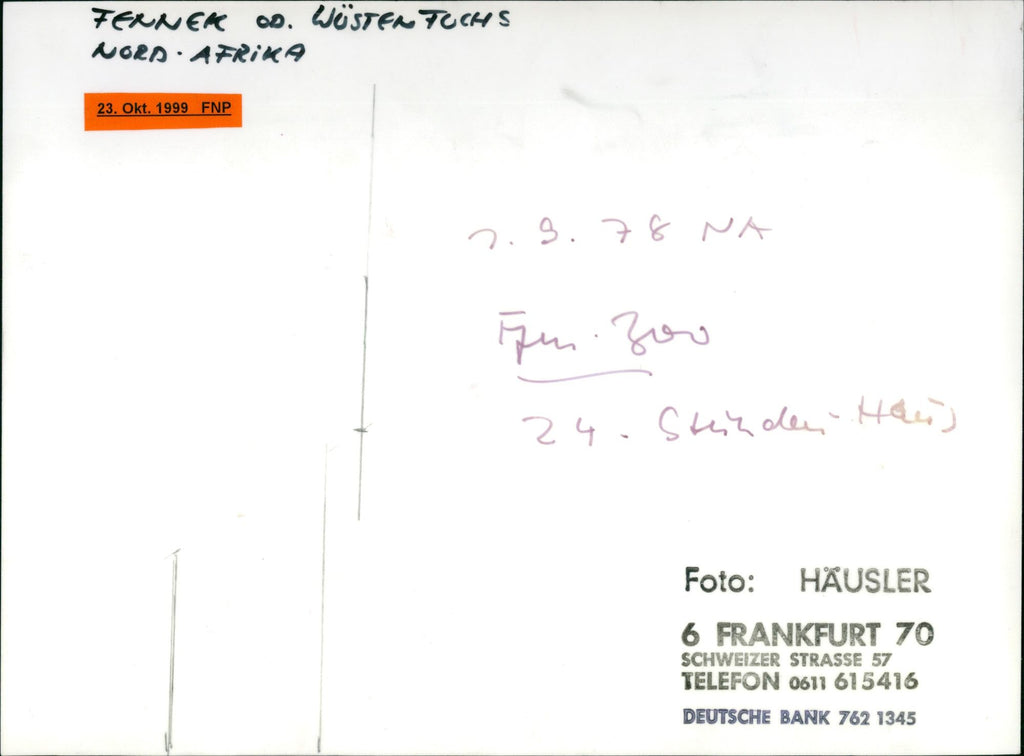 FENNEK OD. WÜSTENFUCHS
NORD-AFRIKA
23. Okt. 1999 FNP
1. 9. 78 NA
Ffm. Zoo
24. Stunden-Haus
Foto: HÄUSLER
6 FRANKFURT 70
SCHWEIZER STRASSE 57
TELEFON 0611 615416
DEUTSCHE BANK 762 1345